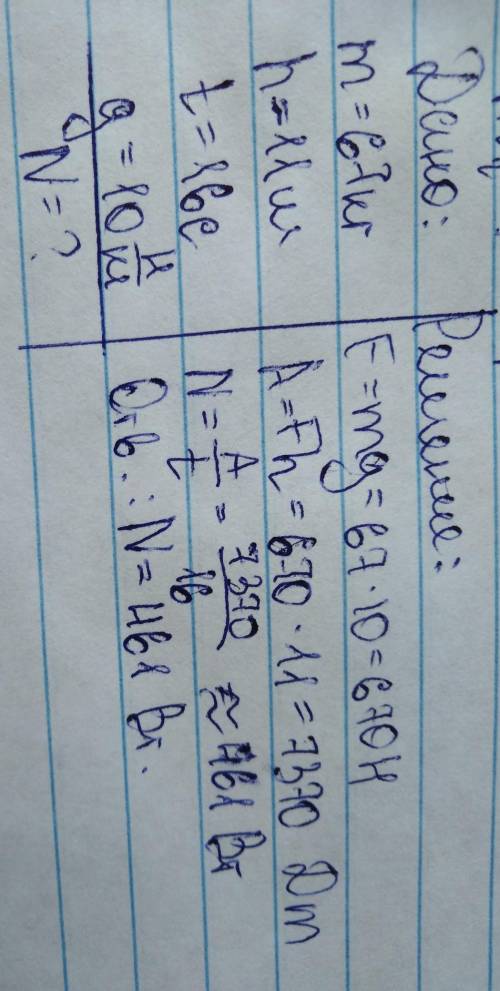 Дано:
m = 67кг
h = 11м
t = 16с
g = 10 н/кг
N = ?
Решение:
F = mg = 67 · 10 = 670 Н
A = Fh = 670 · 11 = 7370 Дж
N = A/t = 7370/16 ≈ 461 Вт
Отв.: N = 461 Вт.